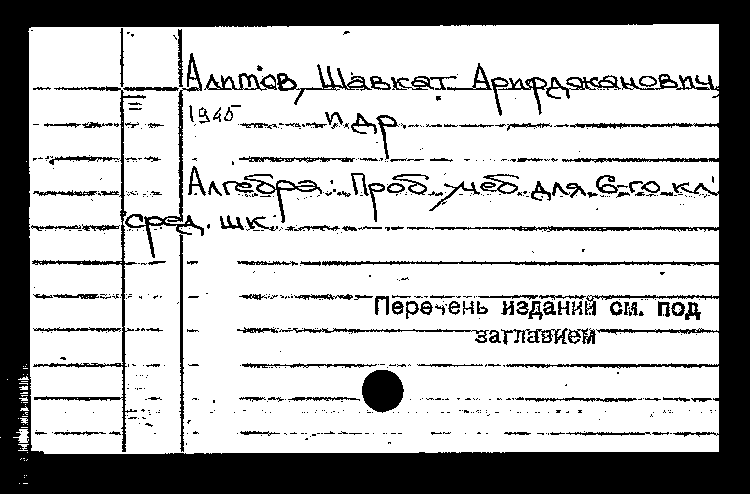 Алимов, Шавкат Арифджанович,
1945
и др.
Алгебра: Проб. учеб. для 6-го кл.
сред. шк.
Перечень изданий см. под
заглавием